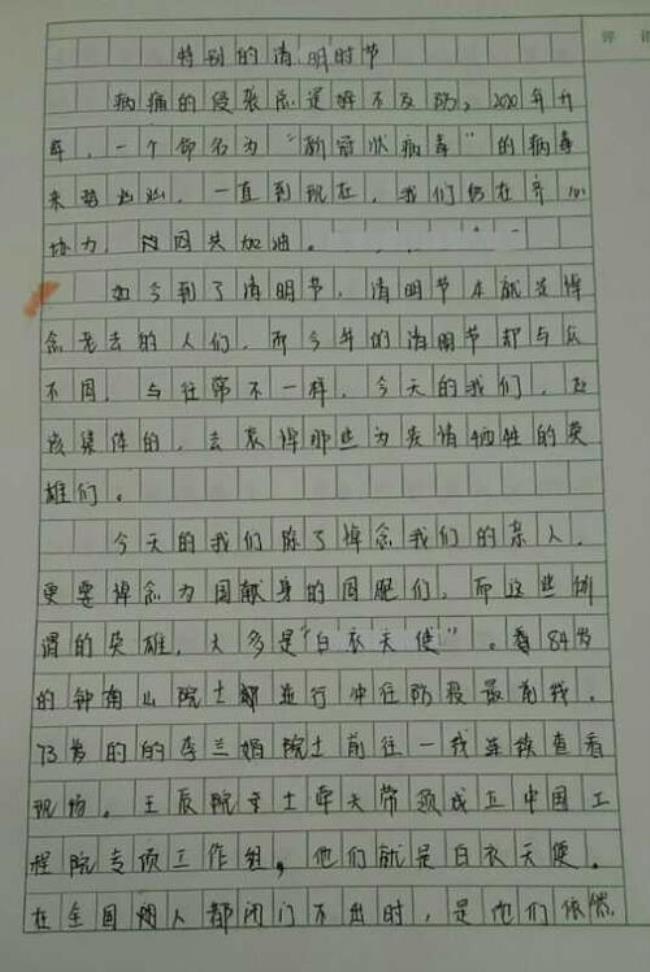 评语
特别的清明时节
病痛的侵袭总是好不及防，2020年开
年，一个命名为“新冠状病毒”的病毒
来势汹汹，一直到现在，我们仍在齐心
协力，为国共加油。
如今到了清明节，清明节本就是悼
念老去的人们，而今年的清明节却与众
不同，与往常不一样，今天的我们，应
该集体的，去哀悼那些为疫情牺牲的英
雄们。
今天的我们除了悼念我们的亲人，
更要悼念为国献身的同胞们，而这些所
谓的英雄，大多是“白衣天使”。看84岁
的钟南山院士都逆行冲往防疫最前线，
73岁的的李兰娟院士前往一线连续查看
现场。王辰院士率大带领成立中国工
程院专项工作组，他们就是白衣天使。
在全国人都闭门不出时，是他们依然